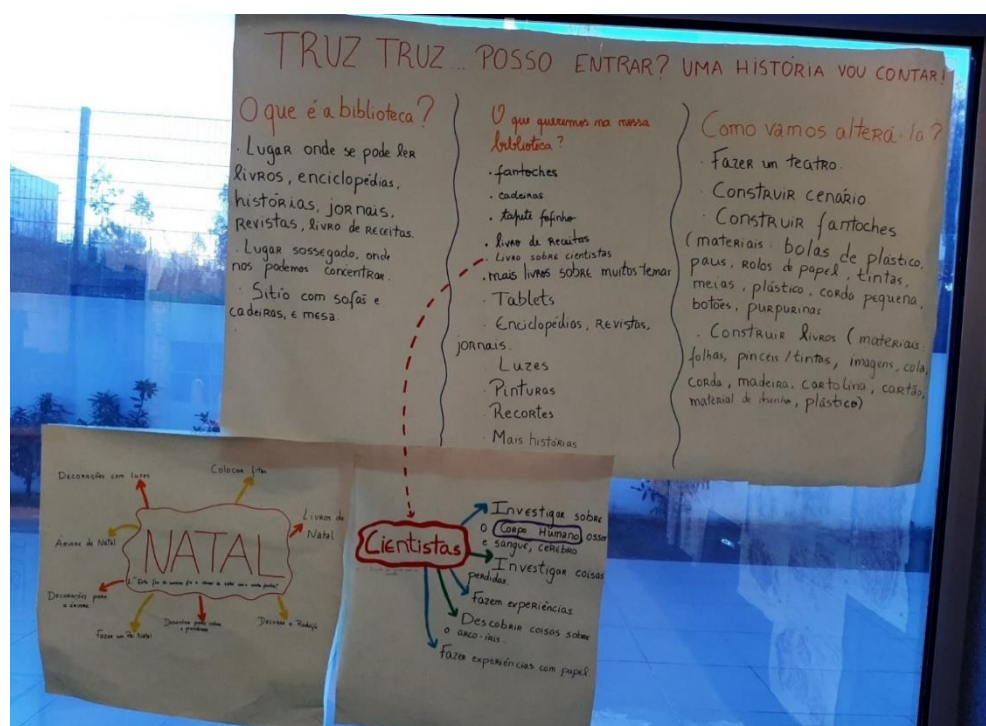 TRUZ TRUZ... POSSO ENTRAR? UMA HISTÓRIA VOU CONTAR!
O que é a biblioteca?
. Lugar onde se pode ler
livros, enciclopédias,
histórias, jornais,
Revistas, livro de Receitas.
. Lugar sossegado, onde
nos podemos concentrar.
. Sitio com sofás e
cadeiras, e mesa.
O que queremos na nossa
biblioteca?
. fantoches
. cadeiras
. tapete fofinho
. livro de Receitas
. Livro sobre cientistas
. mais livros sobre muitos temas
. Tablets
. Enciclopédias, Revistas,
jornais.
. Luzes
. Pinturas
. Recortes
. Mais histórias
Como vamos alterá-la?
. Fazer um teatro.
. Construir cenário.
. Construir fantoches
(materiais: bolas de plástico,
paus, rolos de papel, tintas,
meias, plástico, corda pequena,
botões, purpurinas
. Construir livros (materiais:
folhas, pinceis/tintas, imagens, cola,
corda, madeira, cartolina, cartão,
material de desenho, plástico)
Decorações com luzes
Colocar fitas
Livros de
Natal
Árvore de Natal
NATAL
Decorações para
a árvore
Fazer um Pai Natal
Decorar o
Cientistas
Investigar sobre
o Corpo Humano ossos
e sangue, cérebro
Investigar coisas
perdidas.
Fazem experiências
Descobrir coisas sobre
o arco-íris.
Fazer experiências com papel